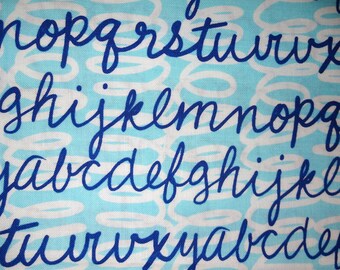 nopqrstuvwx
ghijklmnopq
yabcdefghijkl
tuvwxyabcdef